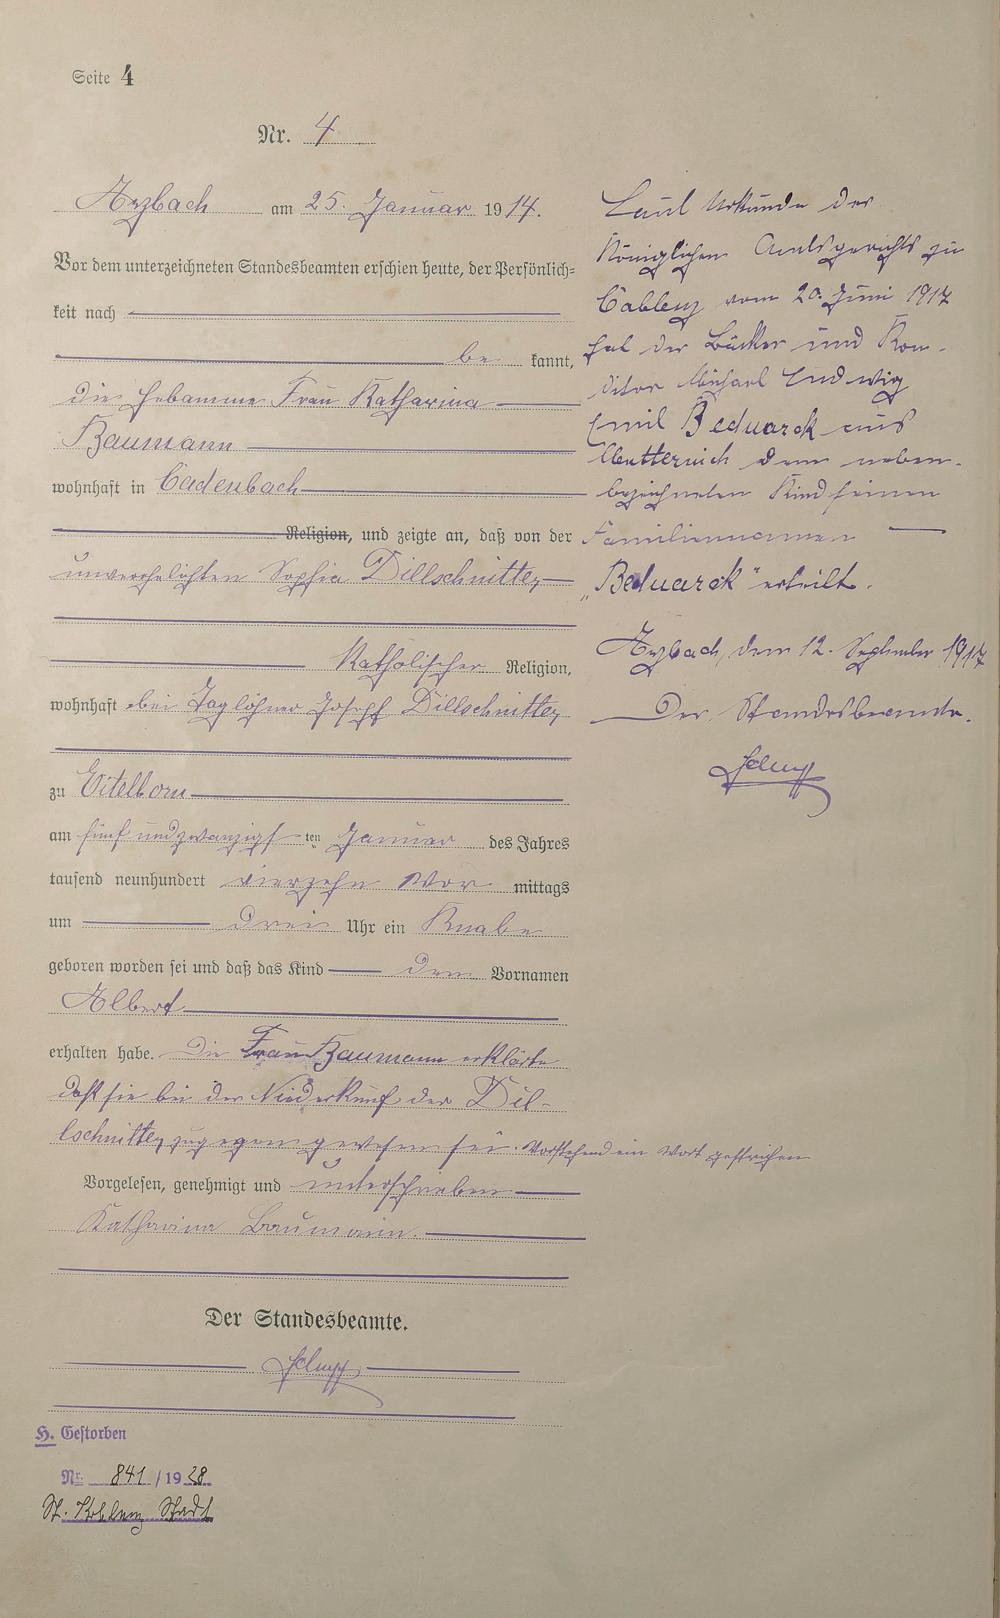 Seite 4
Nr. 4
Arzbach am 25. Januar 1914.
Vor dem unterzeichneten Standesbeamten erschien heute, der Persönlich-
keit nach
be kannt,
die Hebamme Frau Katharina
Baumann
wohnhaft in Cadenbach
Religion, und zeigte an, daß von der
unverehelichten Sophia Dillschnitter,
Katholischer Religion,
wohnhaft bei Taglöhner Joseph Dillschnitter,
zu Eitelborn
am fünf und zwanzigs ten Januar des Jahres
tausend neunhundert vierzehn Vor mittags
um drei Uhr ein Knabe
geboren worden sei und daß das Kind den Vornamen
Albert
erhalten habe. Die Frau Baumann erklärte
daß sie bei der Niederkunf der Dil-
lschnitter, zugegen gewesen sei. Vorstehend ein Wort gestrichen
Vorgelesen, genehmigt und unterschrieben
Katharina Baumann.
Der Standesbeamte.
H. Gestorben
Nr. 841/1928
St. Koblenz Stadt
Laut Urkunde der
Königlichen Amtsgerichts zu
Coblenz vom 20. Juni 1917
hat der Bäcker und Kon-
ditor Michael Ludwig
Emil Beduarck aus
Metternich dem neben-
bezeichneten Kind seinen
Familiennamen
„Beduarck" erteilt.
Arzbach, den 12. September 1917
Der Standesbeamte.